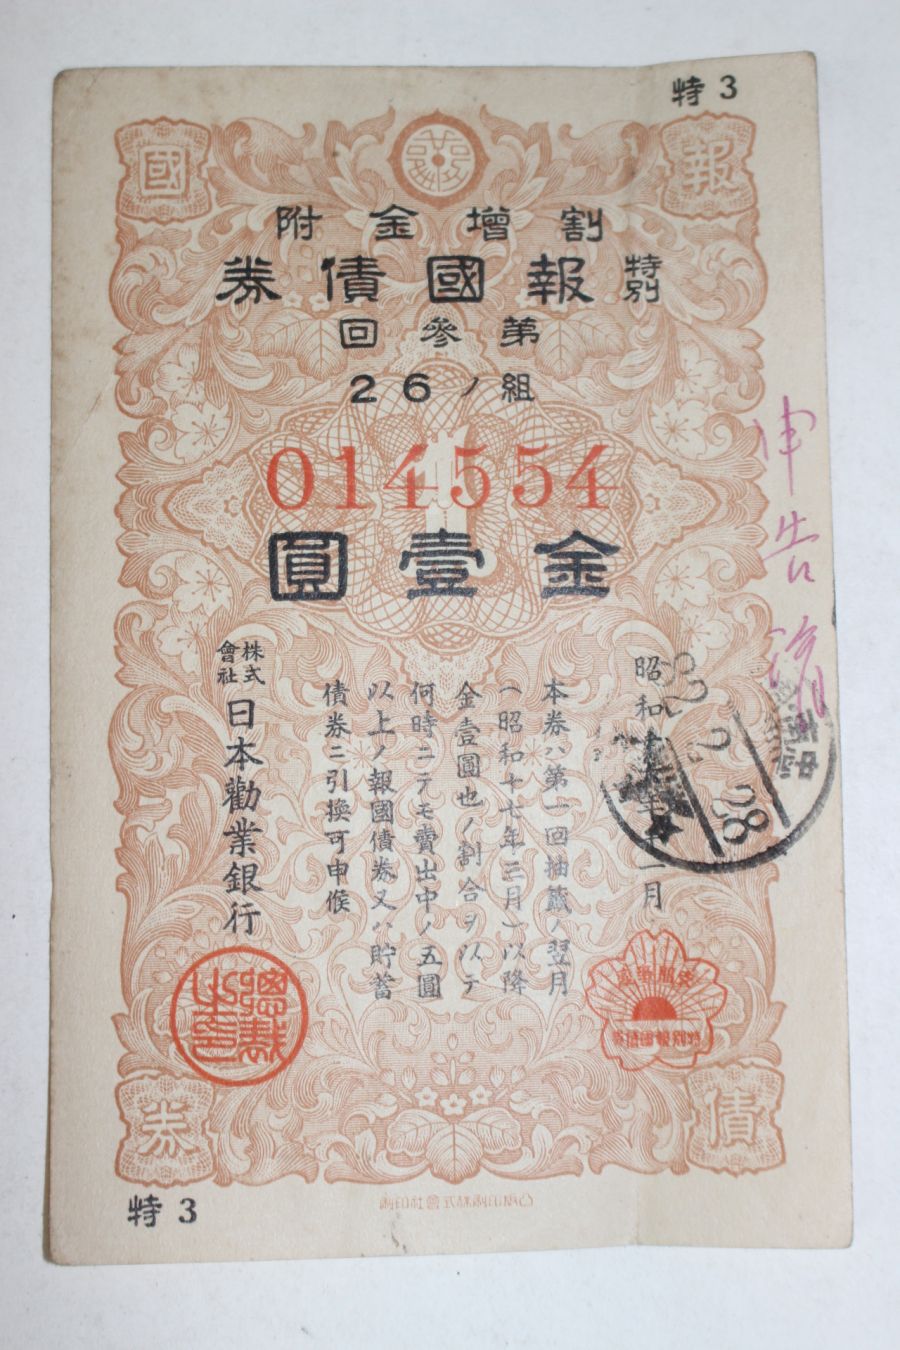 特 3
報
國
割增金附
特別
報國債券
第參回
組ノ26
014554
金壹圓
申告濟
28
本券ハ第一回抽籤ノ翌月
(昭和十七年三月)以降
金壹圓也ノ割合ヲ以テ
何時ニテモ賣出中ノ五圓
以上ノ報國債券又ハ貯蓄
債券ニ引換可申候
株式會社
日本勸業銀行
總裁之印
特別報國債券
債
券
特 3